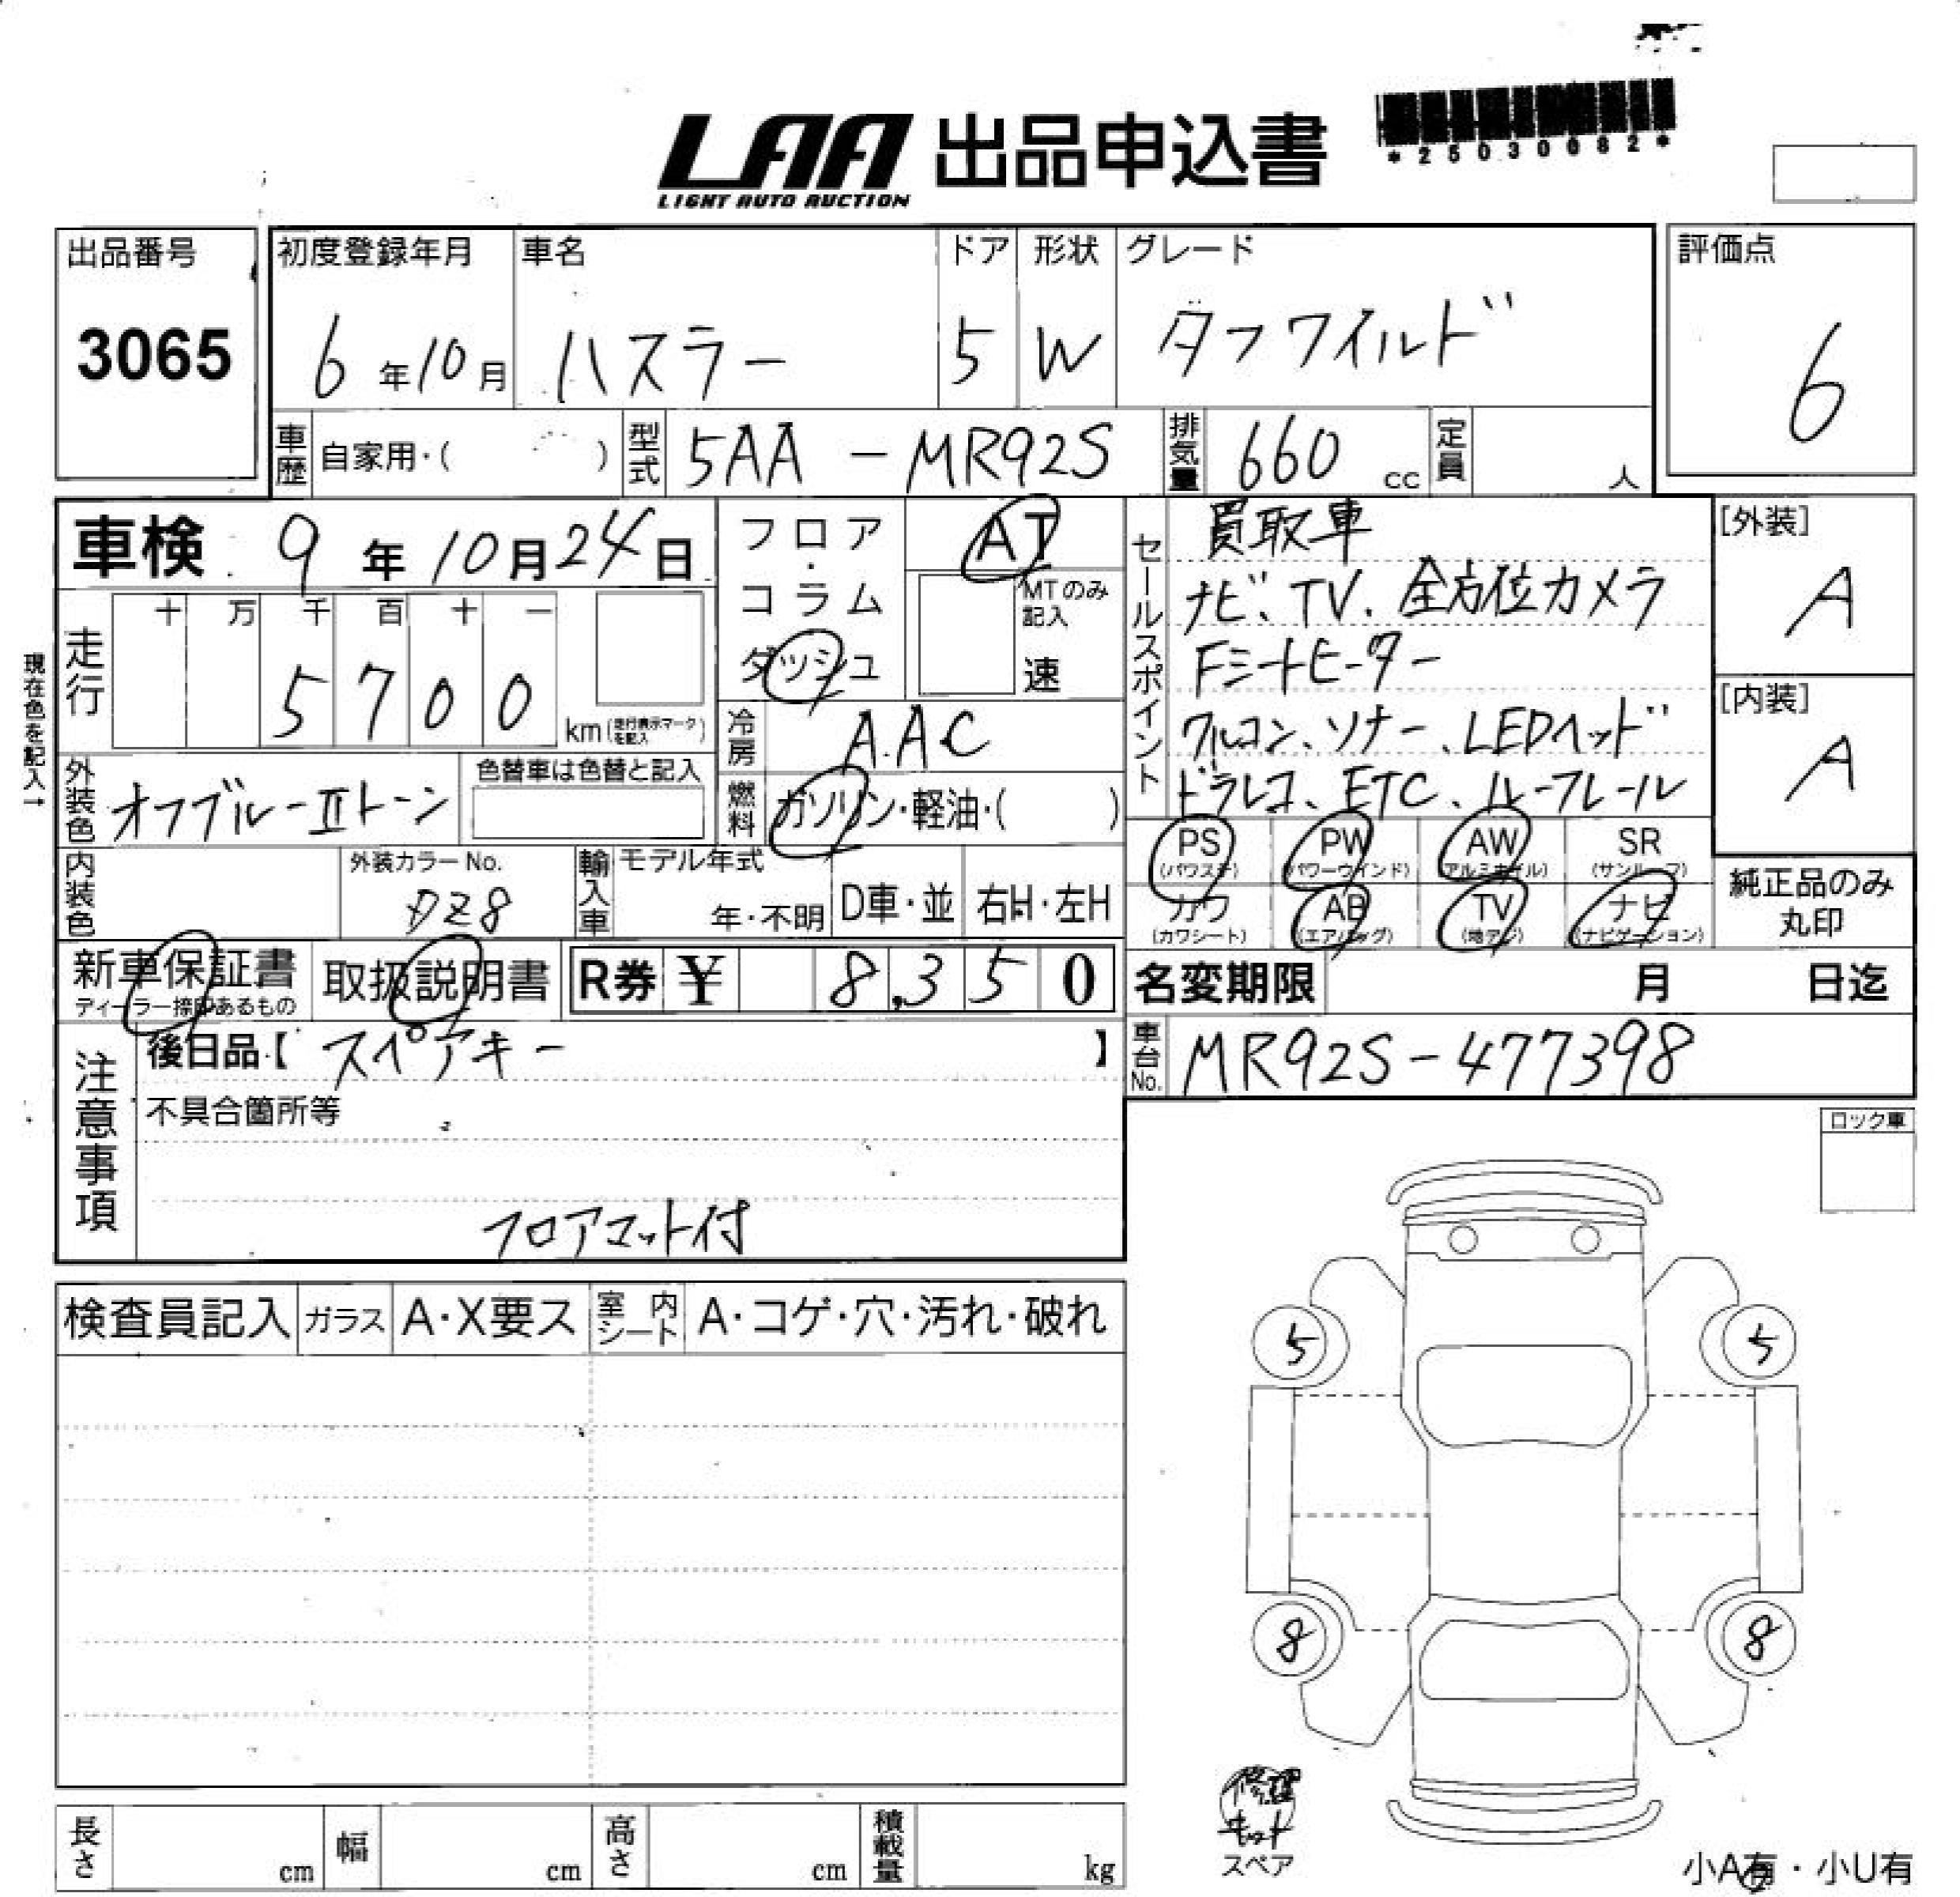 LAA 出品申込書
LIGHT AUTO AUCTION
*25030082*
出品番号
3065
初度登録年月
6年10月
車名
ハスラー
ドア
5
形状
W
グレード
タフワイルド
評価点
6
車歴 自家用・( )
型式 5AA-MR92S
排気量 660 cc
定員 人
車検 9年10月24日
現在色を記入→
走行
十 万 千 百 十 一
5 7 0 0 km(走行表示マークを記入)
フロア・コラム
ダッシュ
AT
MTのみ記入
速
冷房 A.A.C
燃料 ガソリン・軽油・( )
外装色 オフブルーⅡトーン
色替車は色替と記入
内装色
外装カラーNo.
DZ8
輸入車
モデル年式
年・不明
D車・並
右H・左H
セールスポイント
買取車
ナビ、TV、全方位カメラ
Fシートヒーター
クルコン、ソナー、LEDヘッド
ドラレコ、ETC、ルーフレール
[外装]
A
[内装]
A
PS
(パワステ)
PW
(パワーウインド)
AW
(アルミホイル)
SR
(サンルーフ)
カワ
(カワシート)
AB
(エアバッグ)
TV
(地デジ)
ナビ
(ナビゲーション)
純正品のみ
丸印
新車保証書
ディーラー捺印あるもの
取扱説明書
R券 ¥ 8,350
名変期限 月 日迄
車台No. MR92S-477398
注意事項
後日品【 スペアキー 】
不具合箇所等
フロアマット付
ロック車
検査員記入
ガラス A・X要ス
室内シート A・コゲ・穴・汚れ・破れ
5 5
8 8
修理
キット
スペア
小A有・小U有
長さ cm
幅 cm
高さ cm
積載量 kg